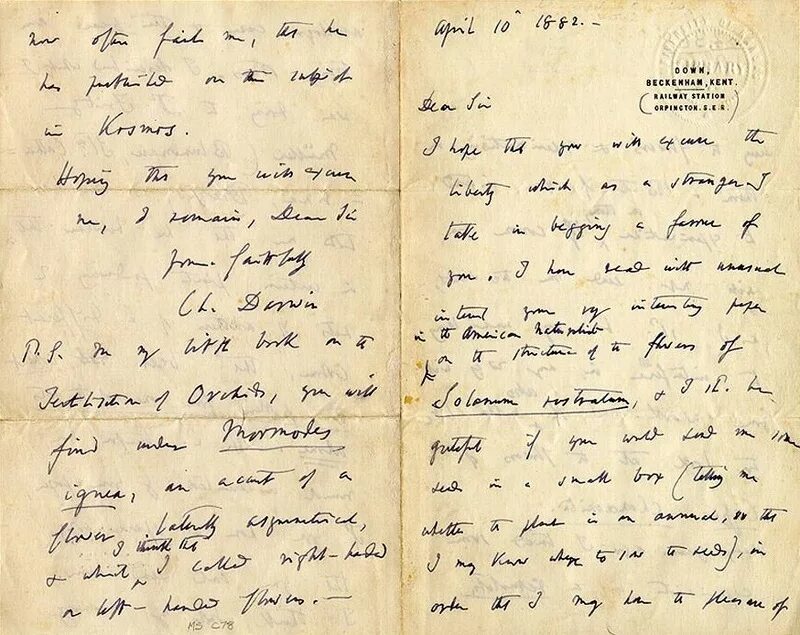 April 10th 1882.—
DOWN,
BECKENHAM, KENT.
(RAILWAY STATION
ORPINGTON. S.E.R.)
Dear Sir
I hope that you will excuse the
liberty which as a stranger I
take in begging a favour of
you. I have read with unusual
interest your very interesting paper
in the American Naturalist
on the structure of the flowers of
Solanum rostratum, & I shd. be
grateful if you would send me some
seeds in a small box (telling me
whether the plant is an annual, so that
I may know when to sow the seeds), in
order that I may have the pleasure of
now often fails me, that he
has published on the subject
in Kosmos.
Hoping that you will excuse
me, I remain, Dear Sir
yours faithfully
Ch. Darwin
P.S. In my little book on the
Fertilisation of Orchids, you will
find under Mormodes
ignea, an account of a
flower laterally asymmetrical,
I think that
& what I called right-handed
or left-handed flowers.—
MS C78